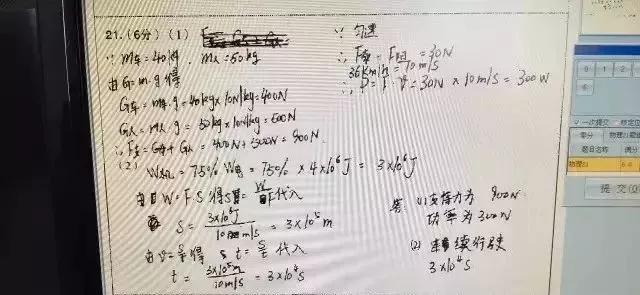 21.(6分)(1)
∵ m车=40kg, m人=50kg
由G=m·g得
G车=m车·g=40kg×10N/kg=400N
G人=m人·g=50kg×10N/kg=500N
∴F支=G车+G人=400N+500N=900N
(2)
W机=75%W电=75%×4×10⁶J=3×10⁶J
由W=F·S得S=W/F代入
S=3×10⁶J/10m/s=3×10⁵m
由v=s/t得 t=s/v代入
t=3×10⁵m/10m/s=3×10⁴s
∵匀速
∴F牵=F阻=30N
36km/h=10m/s
∴P=F·v=30N×10m/s=300W
答:(1)支持力为 900N
功率为300W
(2) 续行驶
3×10⁴s
0 1 2
6
一次提交
零分 物理21题
题目名称 满分
物理21 6.0
提 交(Q)